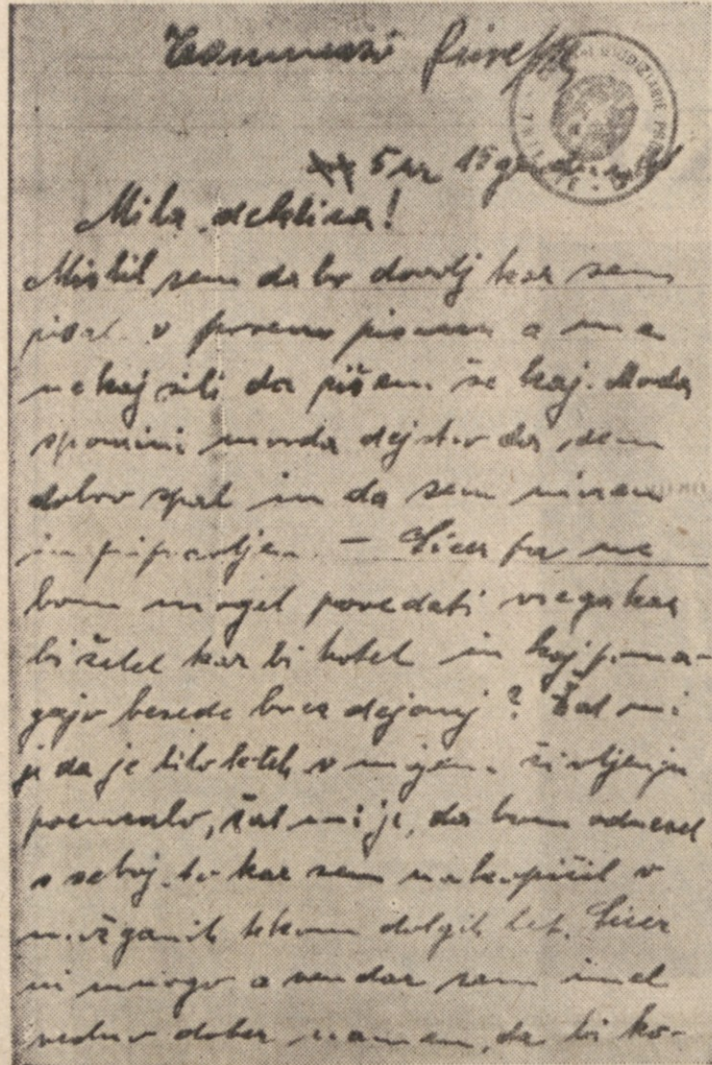 5 ur 15
Mila deklica!
Mislil sem da bo dovolj kar sem
pisal v prvem pismu a me
nekaj sili da pišem še kaj. Morda
spomini morda dejstvo da sem
dobro spal in da sem miren
in pripravljen. — Sicer pa ne
bom mogel povedati vsega kar
bi želel kar bi hotel in kaj poma-
gajo besede brez dejanj? Žal mi
je da je bilo teh v mojem življenju
premalo, žal mi je, da bom odnesel
s seboj to kar sem nakopičil v
možganih tekom dolgih let. Sicer
ni mnogo a vendar sem imel
vedno dober namen, da bi ko-